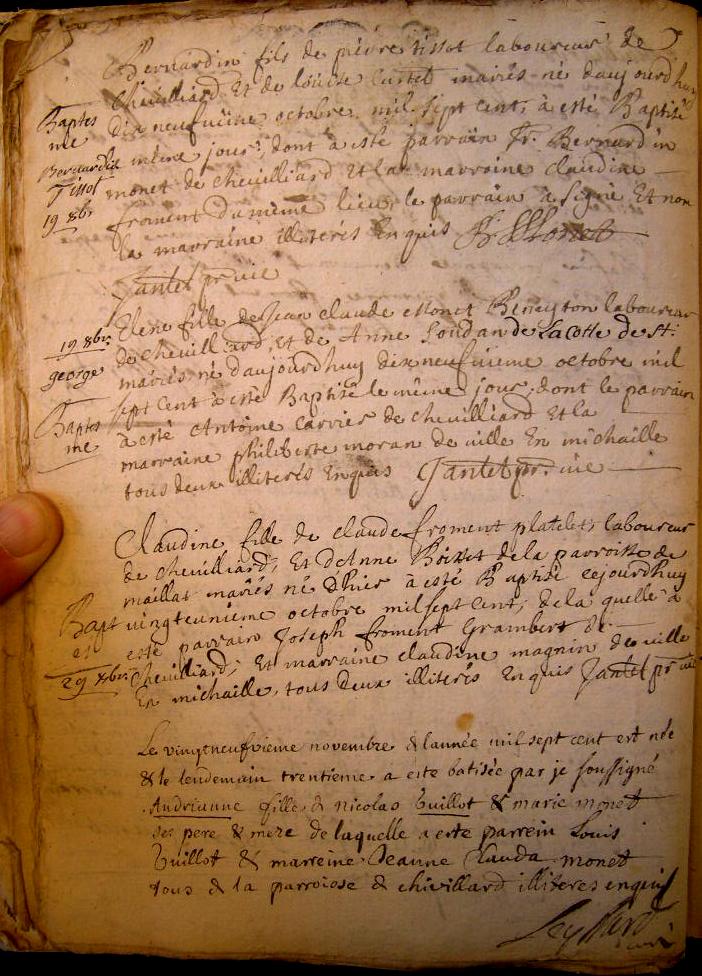 Bernardin fils de pierre tissot laboureur de
chevilliard Et de louise mariés né daujourdhuy
dix neufuiéme octobre mil sept cent, à esté Baptisé
Baptes
me
Bernardin
Tissot
19 8br
même jour, dont à esté parrain fr. Bernardin
monet de chevilliard Et la marraine claudine
froment du même lieu, le parrain à signé Et non
la marraine illiterés Enquis fr B Monet
Jantet pr vic
Elene fille de Jean claude Monet Beneyton laboureur
19 8br
george
de chevilliard, et de Anne Goudan de La Cotte de St:
mariés, né daujourdhuy dix neufuieme octobre mil
sept Cent à esté Baptisé le même jour, dont le parrain
Baptes
me
à esté Antoine carrier de chevilliard Et la
marraine philiberte moran de ville En michaille
tous deux illiterés Enquis Jantet pr. vic
Claudine fille de claude froment platelet, laboureur
de chevilliard, Et dAnne Boisset de la parroisse de
maillat mariés né d'hier à esté Baptisé cejourdhuy
Bapt
vingteunieme octobre mil sept cent, de la quelle à
esté parrain Joseph froment Grambert de
29 8br
chevilliard, Et marraine claudine magnin de ville
En michaille, tous Deux illiterés Enquis Jantet pr vic
Le vingtneufvieme novembre & lannée mil sept cent est née
& le lendemain trentieme a este batisée par je soussigné
Audrianne fille & nicolas Guillot & marie monet
ses pere & mere de laquelle a este parrein Louis
Guillot & marreine Jeanne Clauda monet
tous & la parroisse & chivillard illiteres enquis